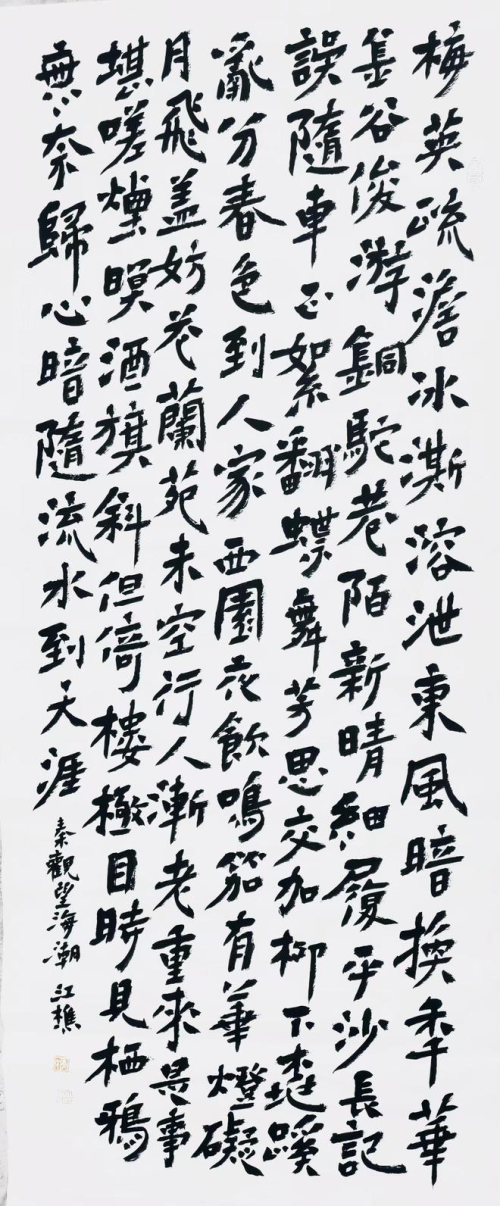 梅英疏澹冰澌溶泄東風暗換年華
金谷俊游銅駝巷陌新晴細履平沙長記
誤隨車正絮翻蝶舞芳思交加柳下桃蹊
亂分春色到人家西園夜飲鳴笳有華燈礙
月飛蓋妨花蘭苑未空行人漸老重來是事
堪嗟煙暝酒旗斜但倚樓極目時見栖鴉
無奈歸心暗隨流水到天涯
秦觀望海潮 江樵